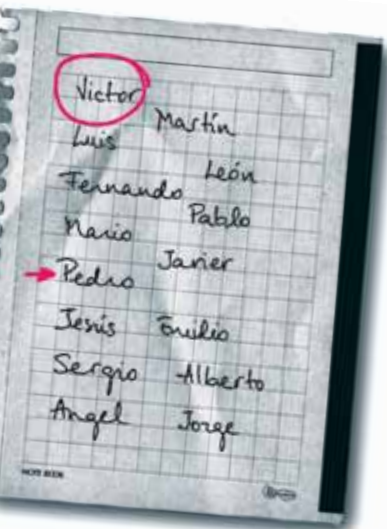 Victor
Martín
Luis
León
Fernando
Pablo
Mario
Javier
Pedro
Jesús Emilio
Sergio Alberto
Angel Jorge
NOTE BOOK